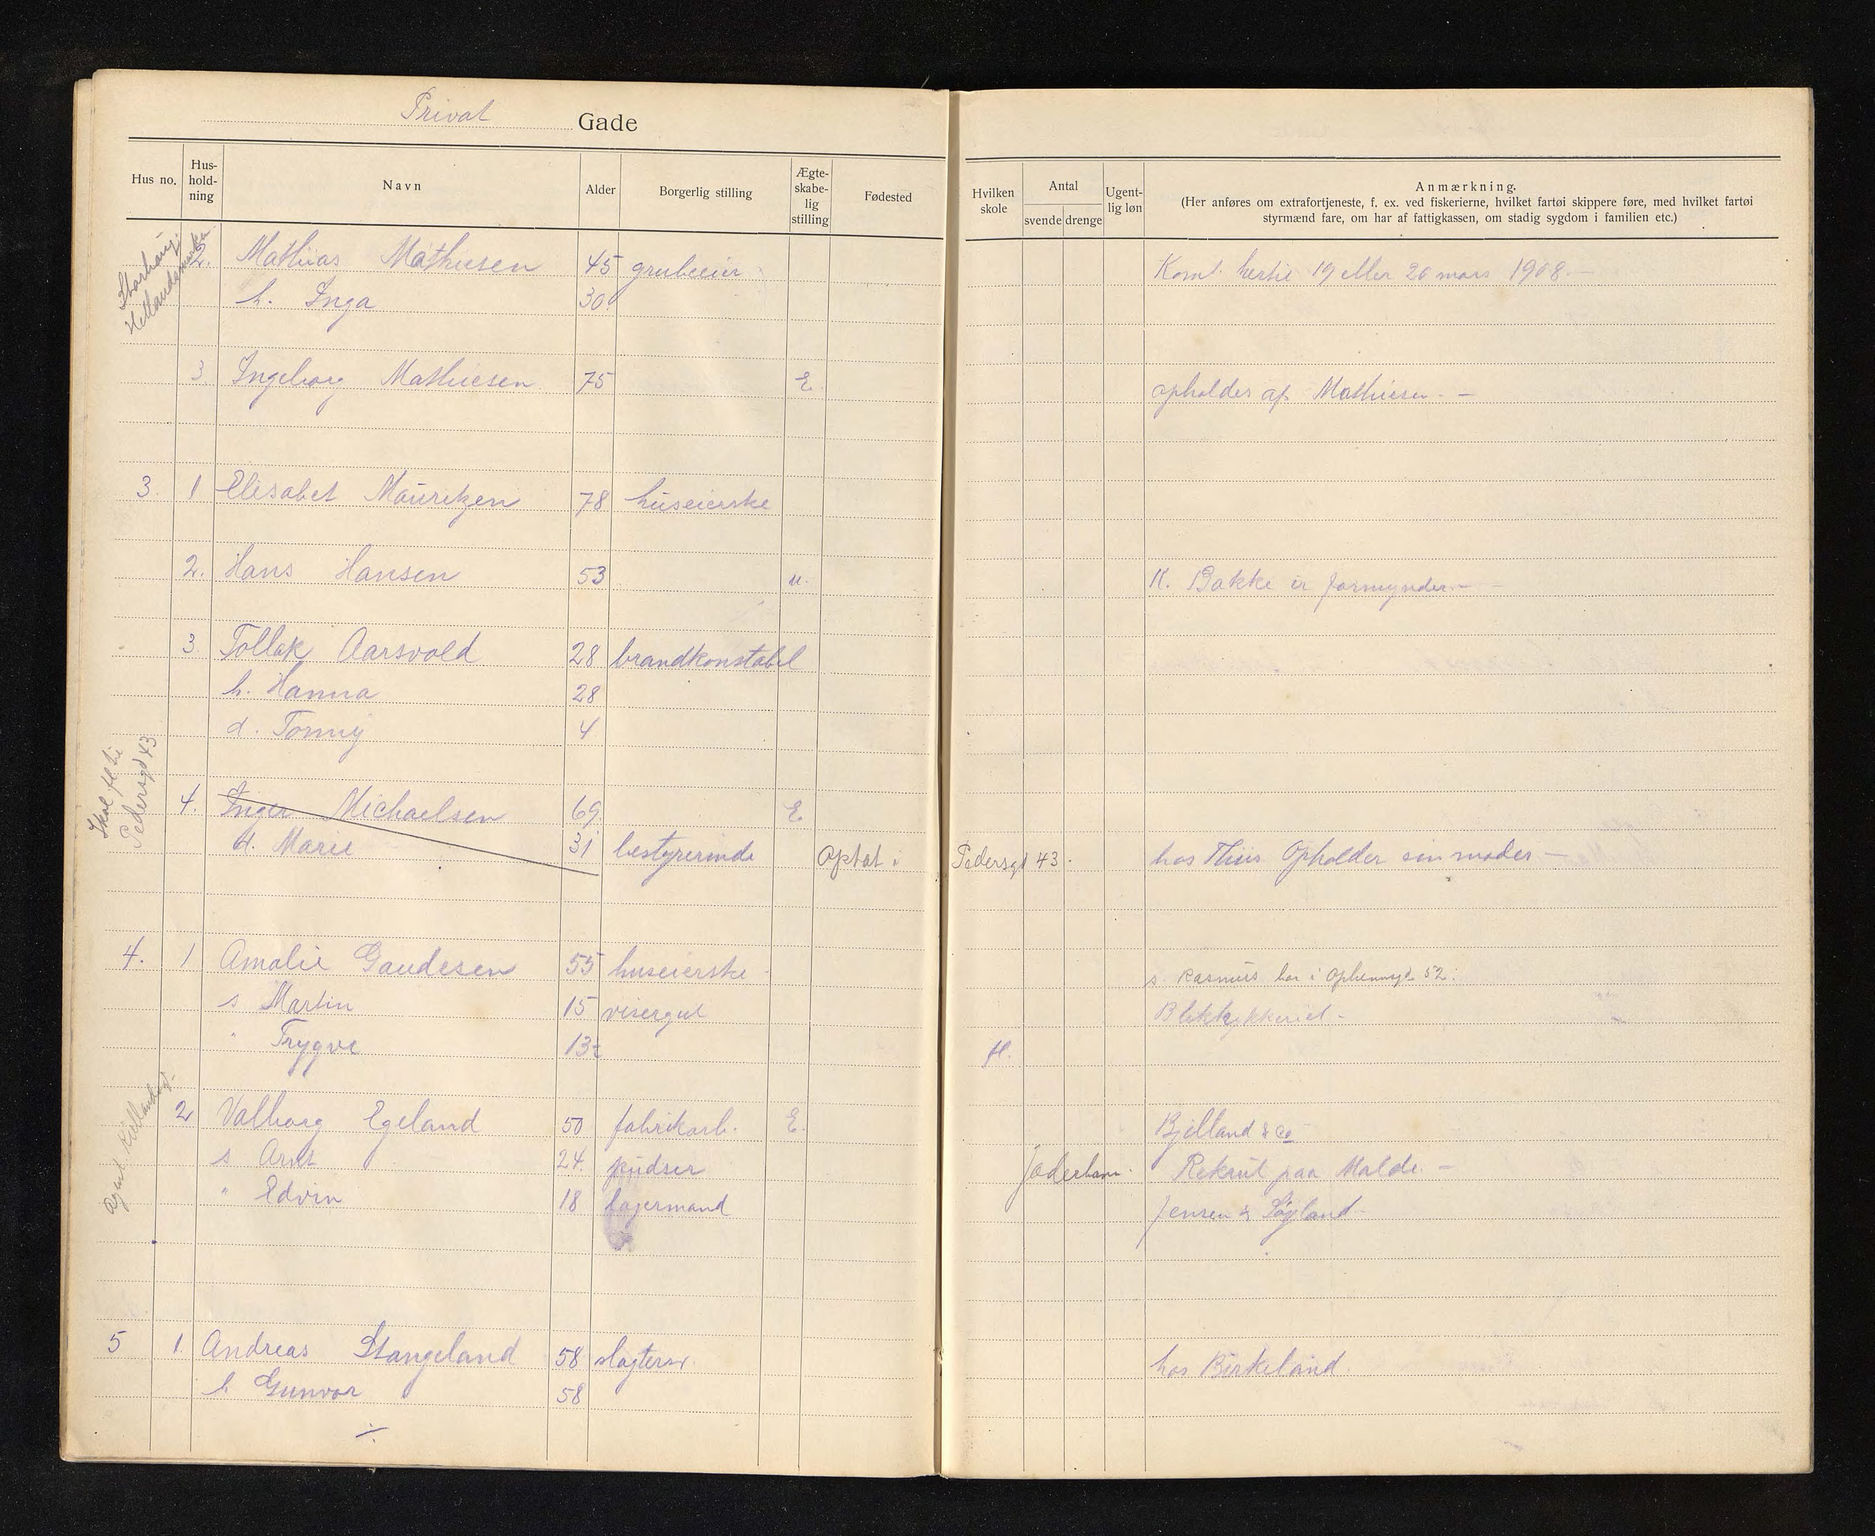 Privat Gade
Hus no. Hus-hold-ning Navn Alder Borgerlig stilling Ægte-skabe-lig stilling Fødested Hvilken skole Antal svende drenge Ugent-lig løn Anmærkning.
(Her anføres om extrafortjeneste, f. ex. ved fiskerierne, hvilket fartøi skippere føre, med hvilket fartøi
styrmænd fare, om har af fattigkassen, om stadig sygdom i familien etc.)
2. Mathias Mathiesen 45 grubeeier Komt hertil 19 eller 20 mars 1908.-
h. Inga 30
3. Ingeborg Mathiesen 75 E. opholdes af Mathiesen. -
3. 1 Elisabet Mauritzen 78 huseierske
2. Hans Hansen 53 u. K. Bakke er formynder.-
3 Tollak Aarsvold 28 brandkonstabel
h. Hanna 28
d. Tonny 4
Skal fl til
Pedersgd 43
4. Inger Michaelsen 69 E
d. Marie 31 bestyrerinde Optat i Pedersgd 43. hos Thiis Opholder sin moder -
4. 1 Amalie Gaudesen 55 huseierske s. Rasmus bor i 52.
s Martin 15 visergut
" Trygve 13 H.
2 Valborg Egeland 50 fabrikarb. E. Bjelland & Co
s Arnt 24. kudser Jaderhavn. Rekrut paa Malde. -
" Edvin 18 lagermand Jensen &
5 1. Andreas Stangeland 58 slagtersv. hos Birkeland.
h Gunvor 58